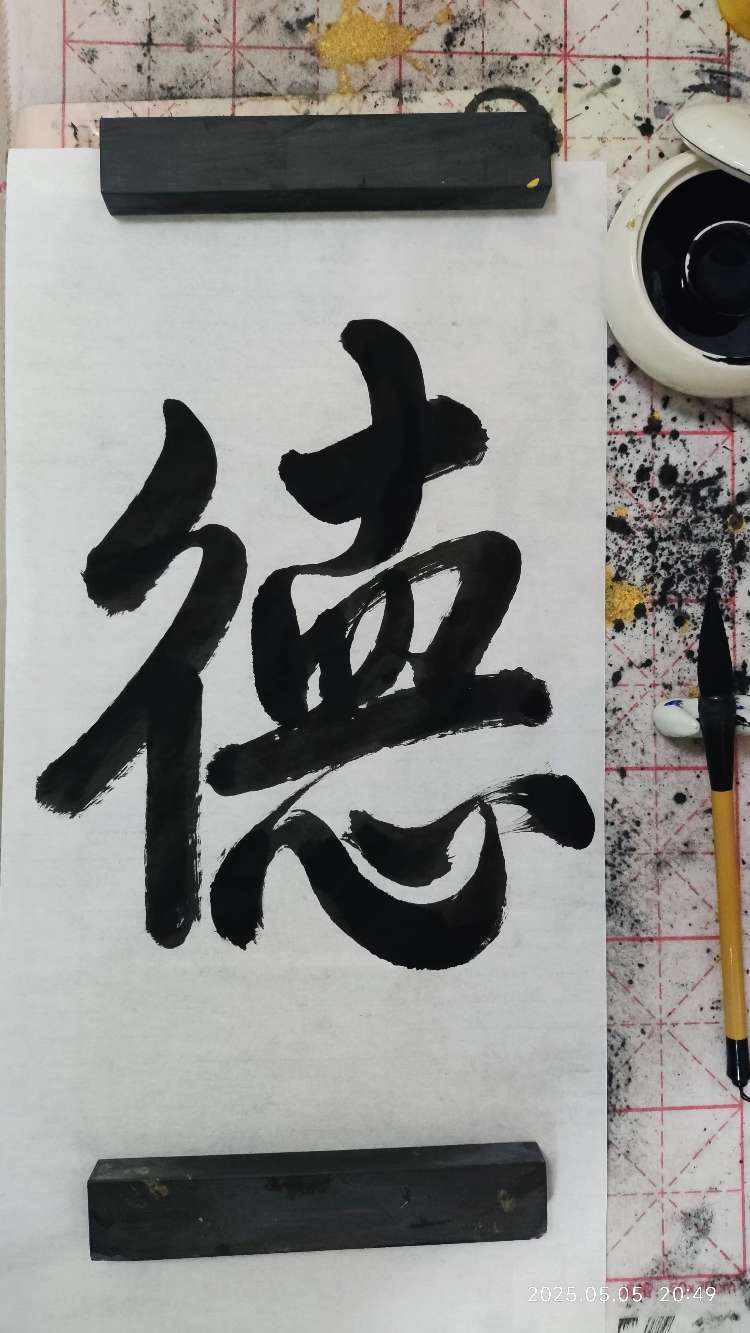 德
2025.05.05 20:49